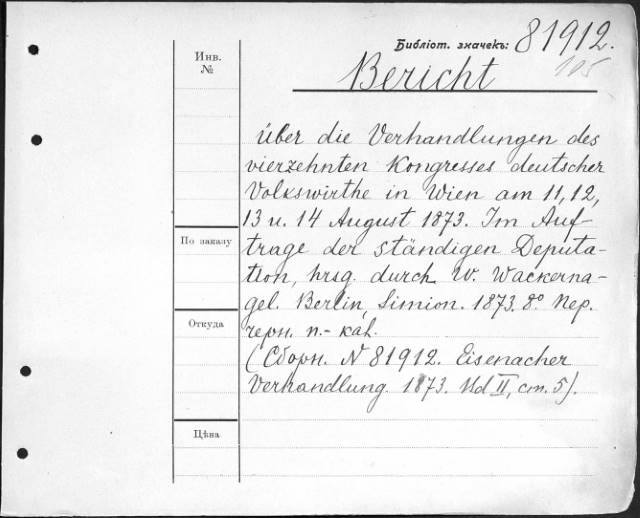 Библіот. значекъ: 81912.
105
Инв.
№
Bericht
über die Verhandlungen des
vierzehnten Kongresses deutscher
Volkswirthe in Wien am 11, 12,
13 u. 14 August 1873. Im Auf-
trage der ständigen Deputa-
tion, hrsg. durch W. Wackerna-
gel. Berlin, Simion. 1873. 8° Пер.
черн. п.-кал.
(Сборн. N 81912. Eisenacher
Verhandlung. 1873. II, ст. 5).
По заказу
Откуда
Цѣна